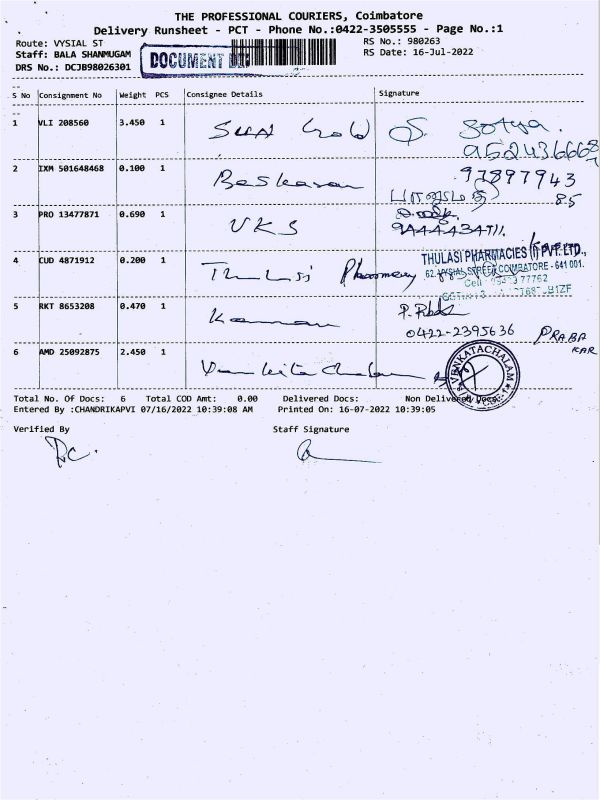 THE PROFESSIONAL COURIERS, Coimbatore
Delivery Runsheet - PCT - Phone No.:0422-3505555 - Page No.:1
Route: VYSIAL ST
RS No.: 980263
Staff: BALA SHANMUGAM
RS Date: 16-Jul-2022
DRS No.: DCJB98026301
DOCUMENT
S No Consignment No Weight PCS Consignee Details Signature
1 VLI 208560 3.450 1 Sun Gold S. Sathya.
2 IXM 501648468 0.100 1 Baskaran 97897943
85
3 PRO 13477871 0.690 1 VKS
4 CUD 4871912 0.200 1 Thulasi Pharmacy
THULASI PHARMACIES (I) PVT. LTD.,
62, VYSIAL STREET, COIMBATORE - 641 001.
5 RKT 8653208 0.470 1 Kannan
0422-2395636 PRABA
KAR
6 AMD 25092875 2.450 1 Venkatachalam
VENKATACHALAM
Total No. Of Docs: 6 Total COD Amt: 0.00 Delivered Docs: Non Delivered Docs:
Entered By :CHANDRIKAPVI 07/16/2022 10:39:08 AM Printed On: 16-07-2022 10:39:05
Verified By Staff Signature